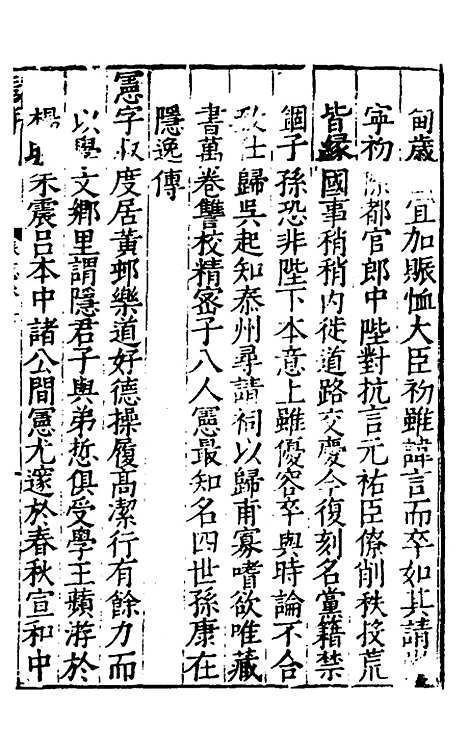 甸歲宜加賑恤大臣初雖諱言而卒如其請
寧初除都官郎中陛對抗言元祐臣僚削秩投荒
皆緣國事稍稍内徙道路交慶今復刻名黨籍禁
錮子孫恐非陛下本意上雖優容卒與時論不合
致仕歸吳起知泰州尋請祠以歸甫寡嗜欲唯藏
書萬卷讐校精密子八人憲最知名四世孫康在
隱逸傳
憲字叔度居黃邨樂道好德操履髙潔行有餘力而
以學文鄉里謂隱君子與弟悊俱受學王蘋游於
楊時朱震吕本中諸公間憲尤邃於春秋宣和中